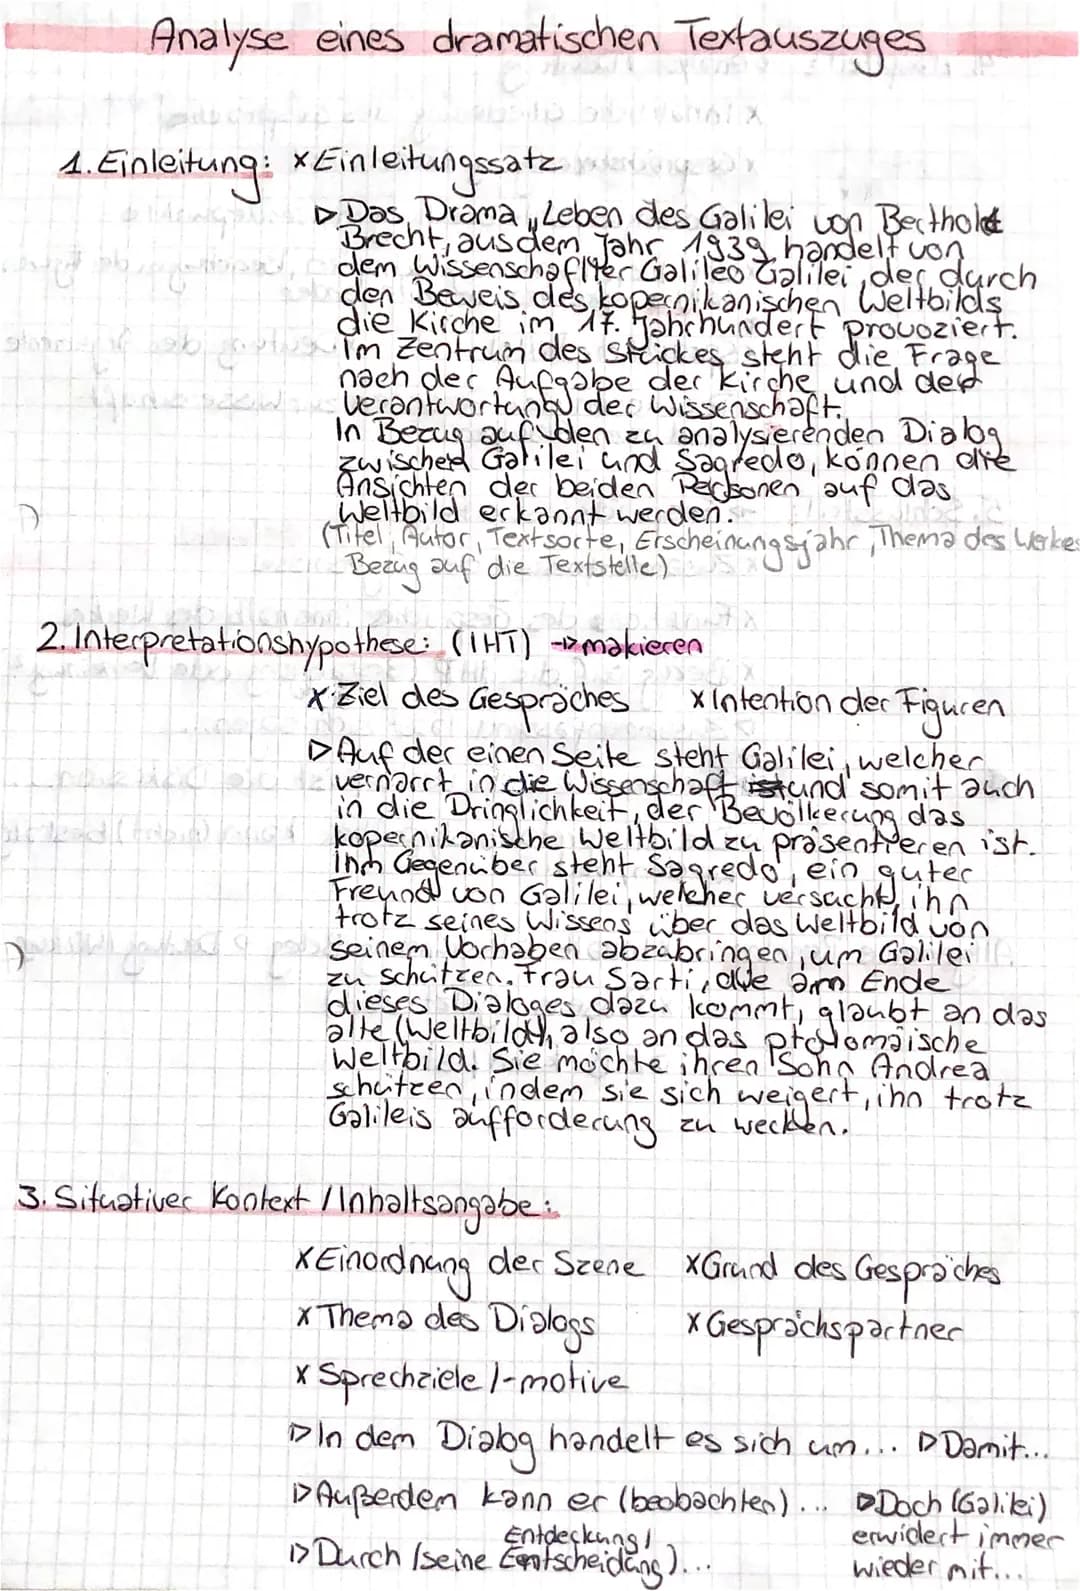 Analyse eines dramatischen Textauszuges
1. Einleitung: x Einleitungssatz
▷ Das Drama „Leben des Galilei von Berthold
Brecht, aus dem Jahr 1939 handelt von
dem Wissenschaftler Galileo Galilei, der durch
den Beweis des kopernikanischen Weltbilds
die Kirche im 17. Jahrhundert provoziert.
Im Zentrum des Stückes steht die Frage
nach der Aufgabe der Kirche und der
Verantwortung der Wissenschaft.
In Bezug auf den zu analysierenden Dialog
zwischen Galilei und Sagredo, können die
Ansichten der beiden Personen auf das
Weltbild erkannt werden.
(Titel, Autor, Textsorte, Erscheinungsjahr, Thema des Werkes
Bezug auf die Textstelle)
2. Interpretationshypothese: (IHT) -▷ makieren
x Ziel des Gespräches x Intention der Figuren
▷ Auf der einen Seite steht Galilei, welcher
vernarrt in die Wissenschaft und somit auch
in die Dringlichkeit, der Bevölkerung das
kopernikanische Weltbild zu präsentieren ist.
Ihm Gegenüber steht Sagredo, ein guter
Freund von Galilei, welcher versucht, ihn
trotz seines Wissens über das Weltbild von
seinem Vorhaben abzubringen, um Galilei
zu schützen. Frau Sarti, die am Ende
dieses Dialoges dazu kommt, glaubt an das
alte Weltbild, also an das ptolomäische
Weltbild. Sie möchte ihren Sohn Andrea
schützen, indem sie sich weigert, ihn trotz
Galileis aufforderung zu wecken.
3. Situativer Kontext / Inhaltsangabe:
x Einordnung der Szene x Grund des Gespräches
x Thema des Dialogs x Gesprächspartner
x Sprechziele /-motive
▷ In dem Dialog handelt es sich um... ▷ Damit...
▷ Außerdem kann er (beobachten)... ▷ Doch (Galilei)
erwidert immer
wieder mit...
Entdeckung/
▷ Durch (seine Entscheidung)...